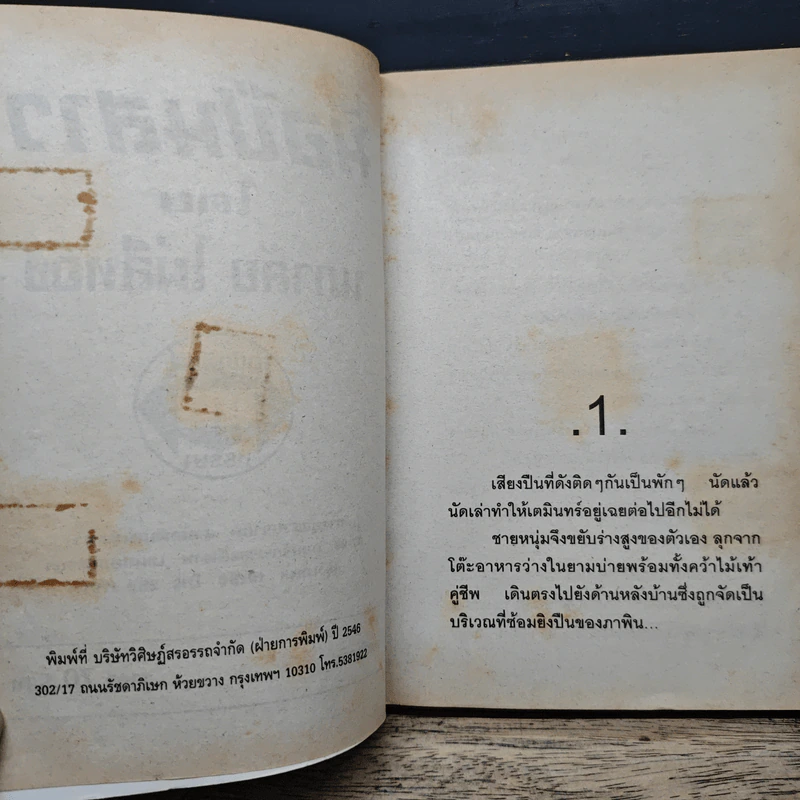 พิมพ์ที่ บริษัทวิศิษฏ์สรอรรถจำกัด (ฝ่ายการพิมพ์) ปี 2546
302/17 ถนนรัชดาภิเษก ห้วยขวาง กรุงเทพฯ 10310 โทร.5381922
.1.
เสียงปืนที่ดังติดๆกันเป็นพักๆ นัดแล้ว
นัดเล่าทำให้เตมินทร์อยู่เฉยต่อไปอีกไม่ได้
ชายหนุ่มจึงขยับร่างสูงของตัวเอง ลุกจาก
โต๊ะอาหารว่างในยามบ่ายพร้อมทั้งคว้าไม้เท้า
คู่ชีพ เดินตรงไปยังด้านหลังบ้านซึ่งถูกจัดเป็น
บริเวณที่ซ้อมยิงปืนของภาพิน...